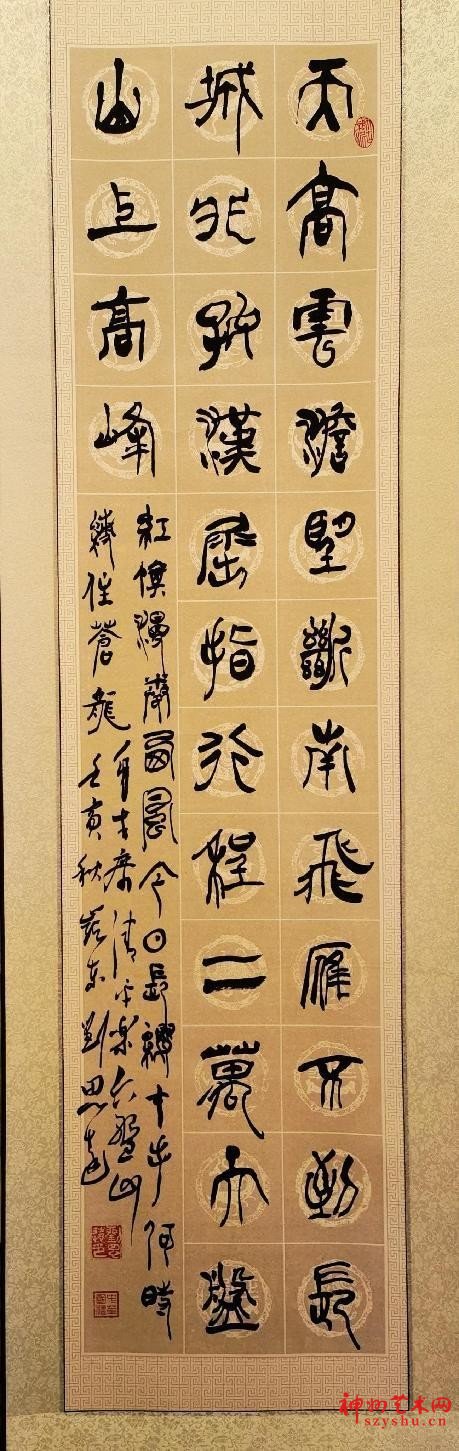 天高雲澹望斷南飛雁不到長
城非好漢屈指行程二萬六盤
山上高峰
紅旗漫卷西風今日長纓在手何時
縛住蒼龍
毛主席清平樂六盤山
壬寅秋劉思
神州艺术网
szyshu.cn